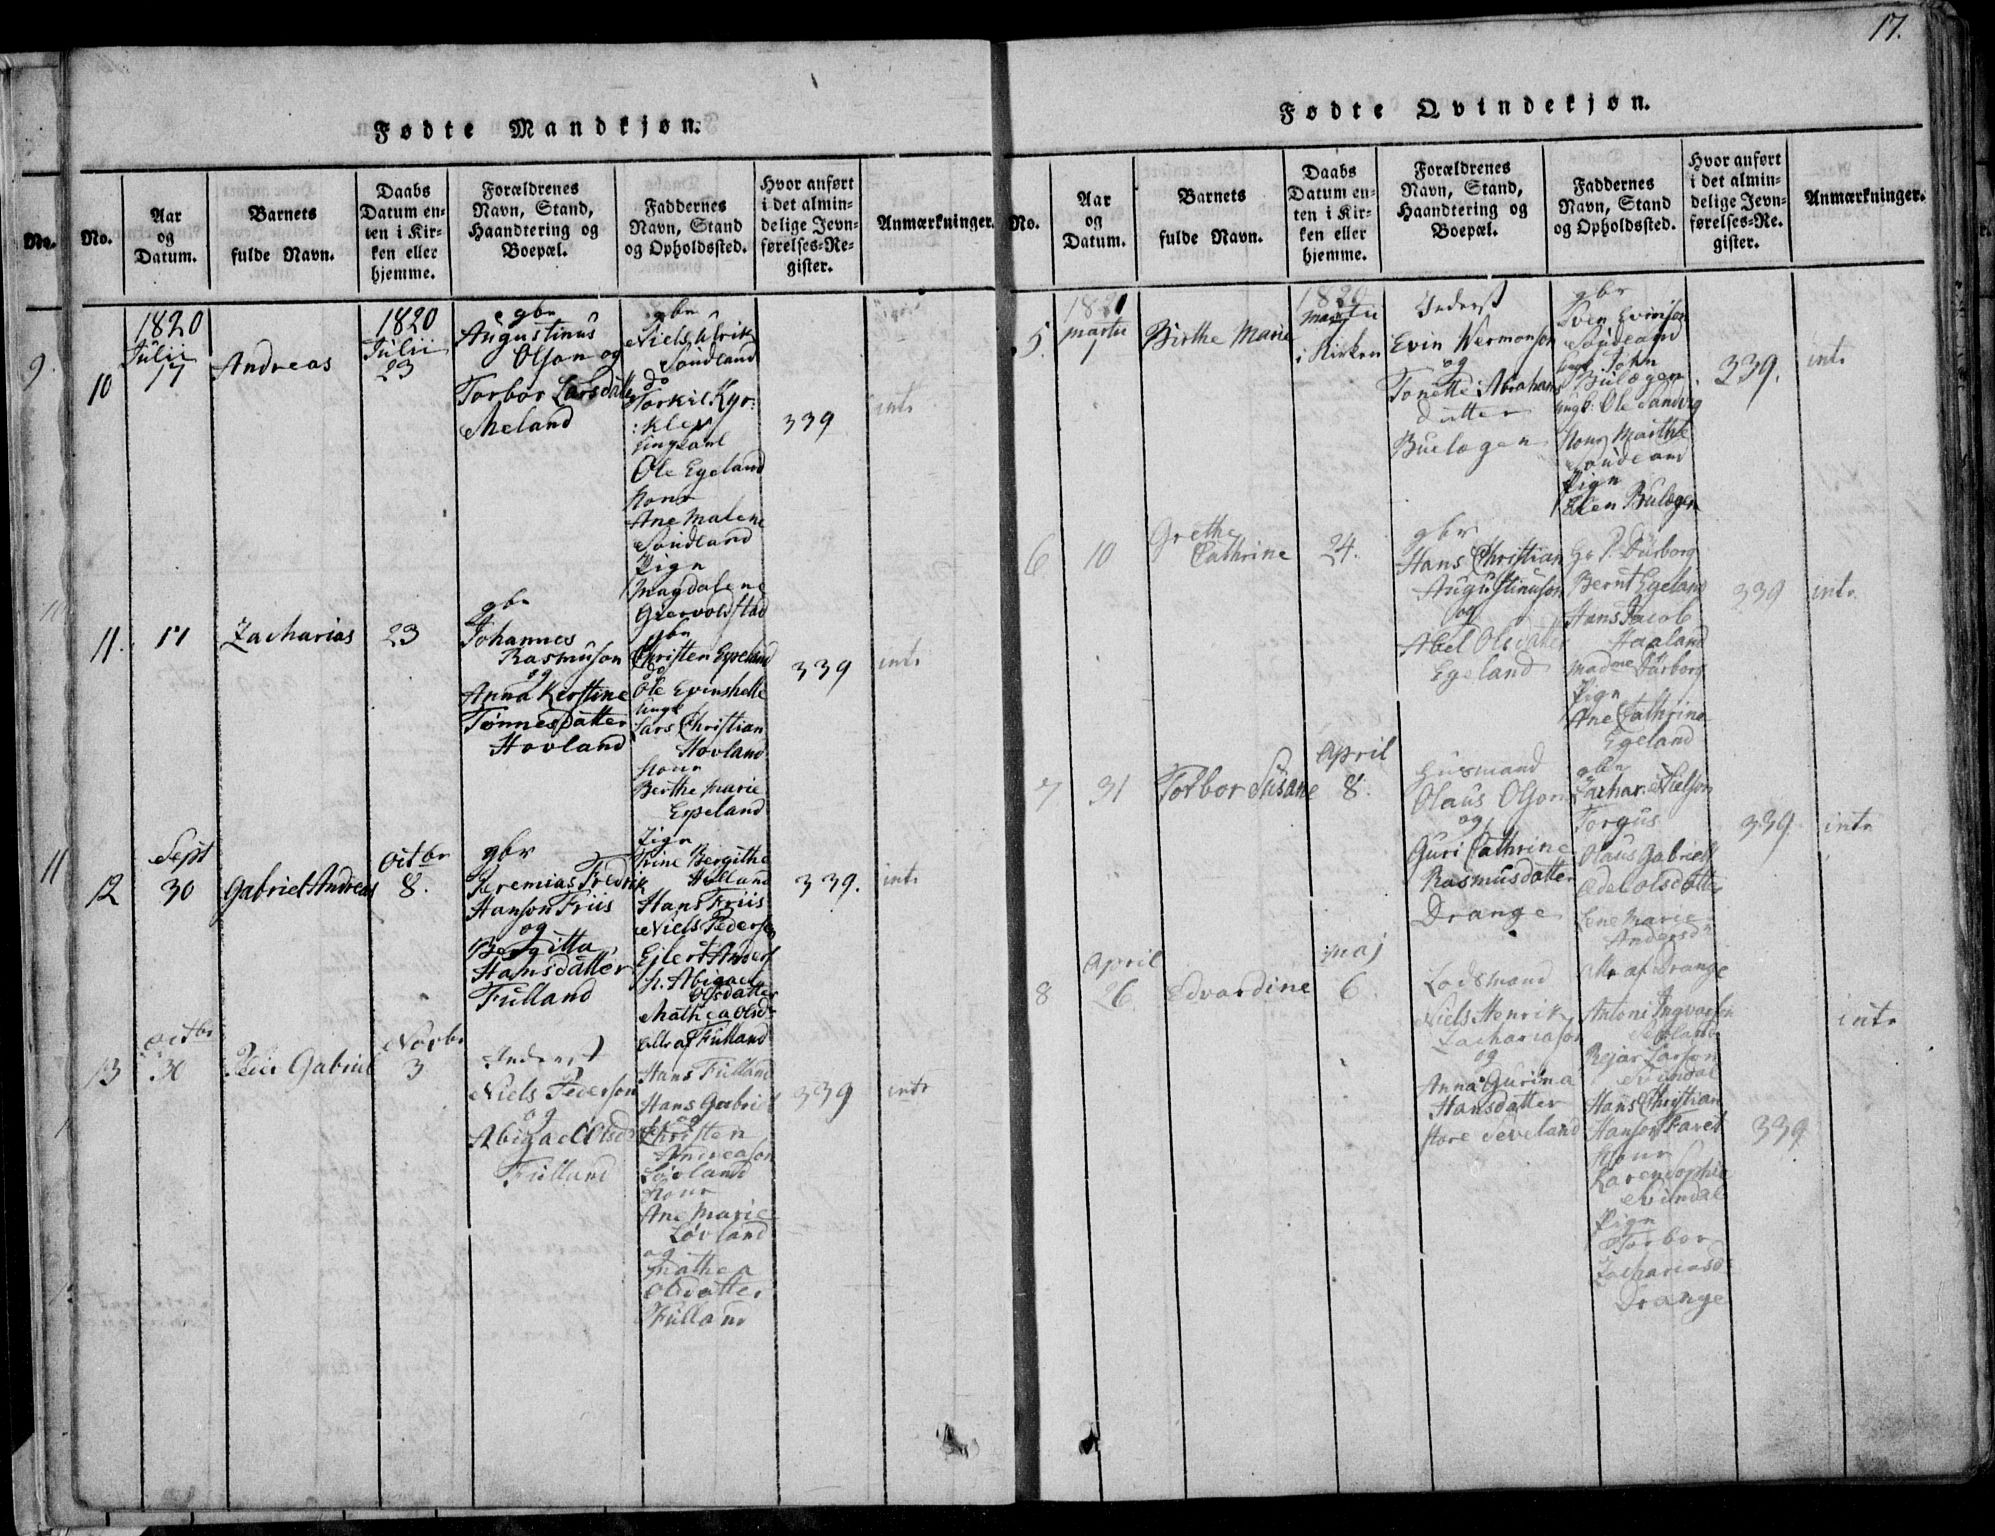 17.
Fødte Mandkjøn.
No.
No.
Aar
og
Datum.
Barnets
fulde Navn.
Daabs
Datum en-
ten i Kir-
ken eller
hjemme.
Forældrenes
Navn, Stand,
Haandtering og
Boepæl.
Faddernes
Navn, Stand
og Opholdssted.
Hvor anført
i det almin-
delige Jevn-
førelses-Re-
gister.
Anmærkninger.
9.
10
1820
Julii
17
Andreas
1820
Julii
23
gbr
Augustinus
Olson og
Torbor Larsdatter
Meland
gbr
Niels Ulrik
Søndland
do
Torkil Kyr:
:klev
Ungkarl
Ole Egeland
Kone
Ane Malene
Søndland
Pign
Magdalene
Giervoldstad
339
intr
11.
17
Zacharias
23
gbr
Johannes
Rasmuson
og
Anna Kirstine
Tønnesdatter
Hovland
gbr
Christen Epeland
do
Ole Evenshelle
Ungk
Lars Christian
Hovland
Kone
Berthe Marie
Epeland
Pign
Trine Bergithe
339
intr
11
12
Sept
30
Gabriel Andreas
Octbr
8.
gbr
Jeremias Fredrik
Hanson Friis
og
Bergitta
Hansdatter
Fulland
Hans Friis
Niels Pederson
Ejlert Anders
Abigael
Olsdatter
Mathea Olsd
alle af Fulland
339.
intr
13
Octbr
30
Gabriel
Novbr
3
Inderst
Niels Pederson
og
Abigael Olsd
Fulland
Hans Fulland
Hans Gabriel
og
Christen
Andreason
Løvland
Kone
Ane Marie
Løvland
og
Mathea
Olsdatter
Fulland
339
intr
Fødte Qvindekjøn.
No.
Aar
og
Datum.
Barnets
fulde Navn.
Daabs
Datum en-
ten i Kir-
ken eller
hjemme.
Forældrenes
Navn, Stand,
Haandtering og
Boepæl.
Faddernes
Navn, Stand
og Opholdssted.
Hvor anført
i det almin-
delige Jevn-
førelses-Re-
gister.
Anmærkninger.
5.
martii
1
Birthe Marie
martii
i Kirken
Inderst
Evin Wermonson
og
Tonette Abrahams
datter
Buelægen
gbr
Sven Evinson
Søndland
Ungk John
Bulægen
Ungk: Ole Sandvig
Kone Marthe
Søndland
Pign
Elen Bulægen
339.
intr
6
10
Grethe
Cathrine
24.
gbr
Hans Christian
Augustinuson
og
Abel Olsdatter
Egeland
Hr P. Dürborg
Bernt Egeland
Hans Jacob
Haaland
Madme Dürborg
Pign
Ane Cathrine
Egeland
339
intr.
7
31
Torbor Susane
April
8.
Husmand
Olaus Olson
og
Guri Cathrine
Rasmusdatter
Drange
gbr
Zachar: Nielson
Torgus
Olaus Gabriels
Adel Olsdatter
Lene Marie
Andersdr
alle af Drange
339
intr
8
April
26
Edvardine
Maj
6.
Lodsmand
Niels Henrik
Zachariason
og
Anna Gurina
Hansdatter
store Seveland
Antoni Ingvarson
Rejar Larson
Svindal
Hans Christian
Hanson Faret
Kone
Karen Sophie
Svindal
Pign
Torbor
Zachariasd
Drange
339
intr